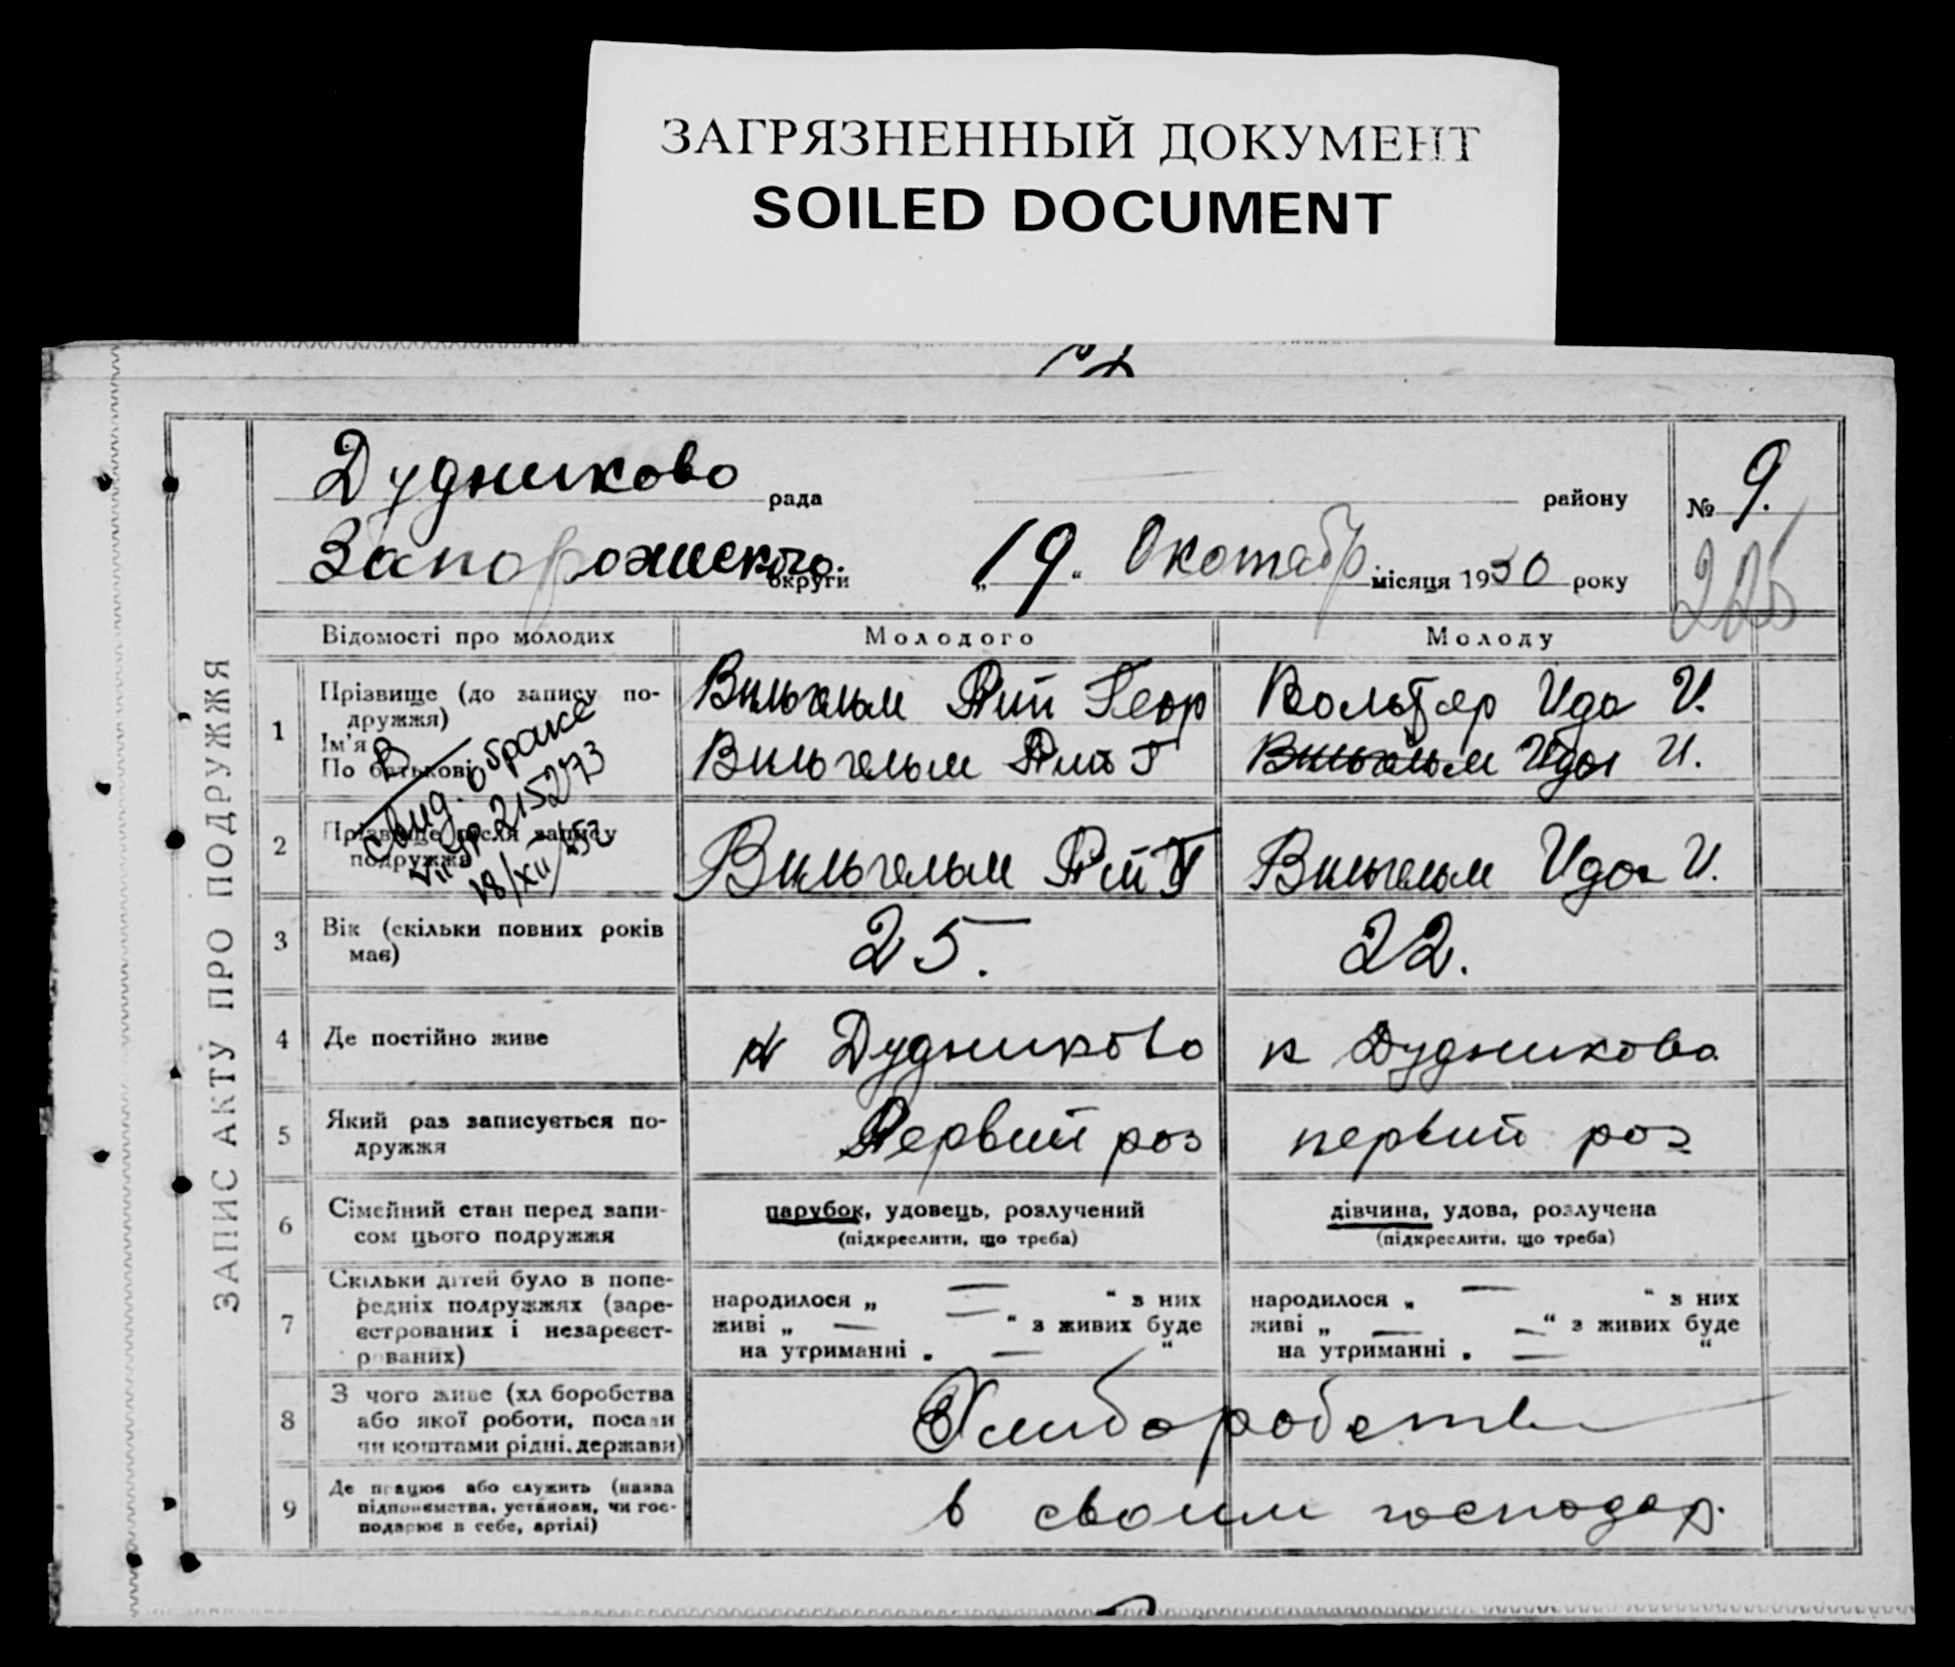 ЗАГРЯЗНЕННЫЙ ДОКУМЕНТ
SOILED DOCUMENT
ЗАПИС АКТУ ПРО ПОДРУЖЖЯ
Дудниково рада району № 9.
226
Запорожского округи „19." Окотабр. місяця 1930 року
Відомості про молодих Молодого Молоду
1 Прізвище (до запису по-
дружжя)
Ім'я
По батькові
Вильгельм Геор
Вильгельм Г
Вольтер Ида И.
Вильгельм Ида И.
В
свид. о браке
215273
18/XII/52
2 Прізвище після запису
подружжя
Вильгельм Г
Вильгельм Ида И.
3 Вік (скільки повних років
має)
25. 22.
4 Де постійно живе
к Дудниково к Дудниково
5 Який раз записується по-
дружжя
Первий роз первий роз
6 Сімейний стан перед запи-
сом цього подружжя
парубок, удовець, розлучений
(підкреслити, що треба)
дівчина, удова, розлучена
(підкреслити, що треба)
7 Скільки дітей було в попе-
редніх подружжях (заре-
єстрованих і незареєст-
рованих)
народилося „ — " з них
живі „ — " з живих буде
на утриманні „ — "
народилося „ — " з них
живі „ — " з живих буде
на утриманні „ — "
8 З чого живе (хліборобства
або якої роботи, посади
чи коштами рідні, держави)
Хлиборобства
9 Де працює або служить (назва
підприємства, установи, чи гос-
подарює в себе, артілі)
в своим господар.